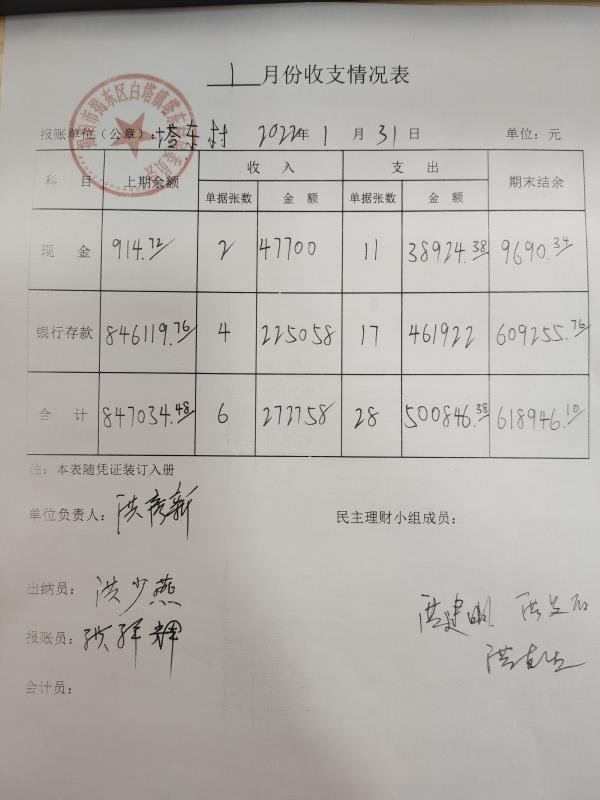 1月份收支情况表
报账单位(公章):塔东村 2022年 1 月 31 日 单位:元
科 目 上期余额 收 入 支 出 期末结余
单据张数 金 额 单据张数 金 额
现 金 914.72 2 47700 11 38924.38 9690.34
银行存款 846119.76 4 225058 17 461922 609255.76
合 计 847034.48 6 272758 28 500846.38 618946.10
注:本表随凭证装订入册
单位负责人:洪彦新 民主理财小组成员:
出纳员:洪少燕
洪建明 洪
报账员:
洪
会计员: